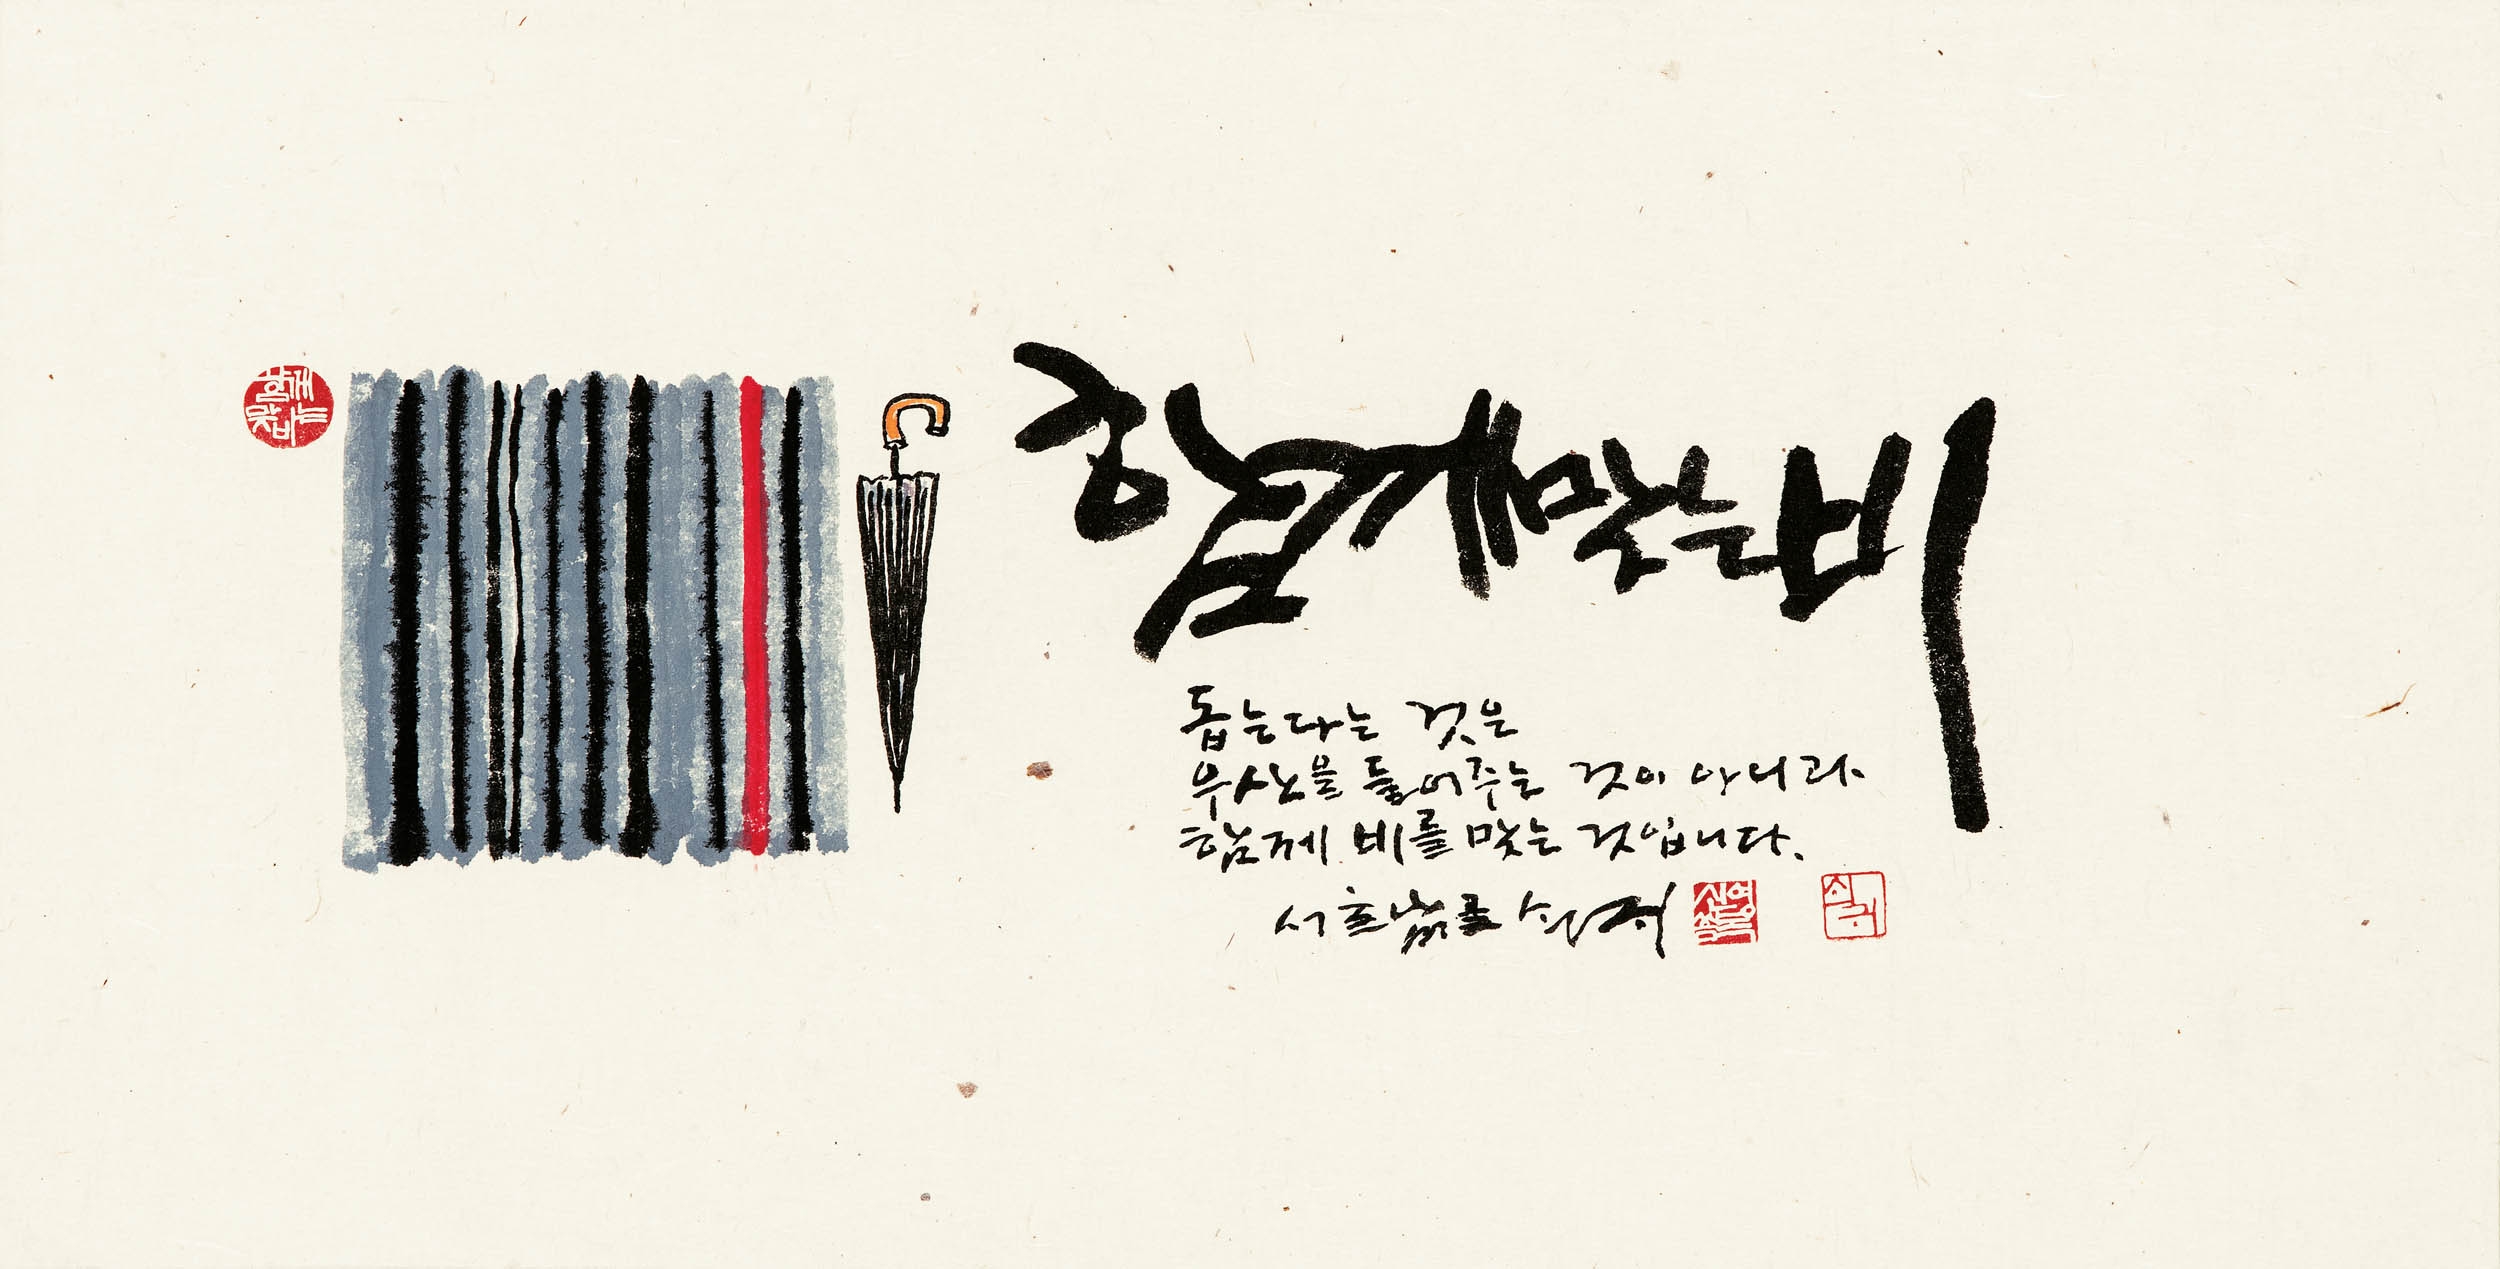 함께
맞는비
함께맞는비
돕는다는 것은
우산을 들어주는 것이 아니라.
함께 비를 맞는 것입니다.
쇠귀